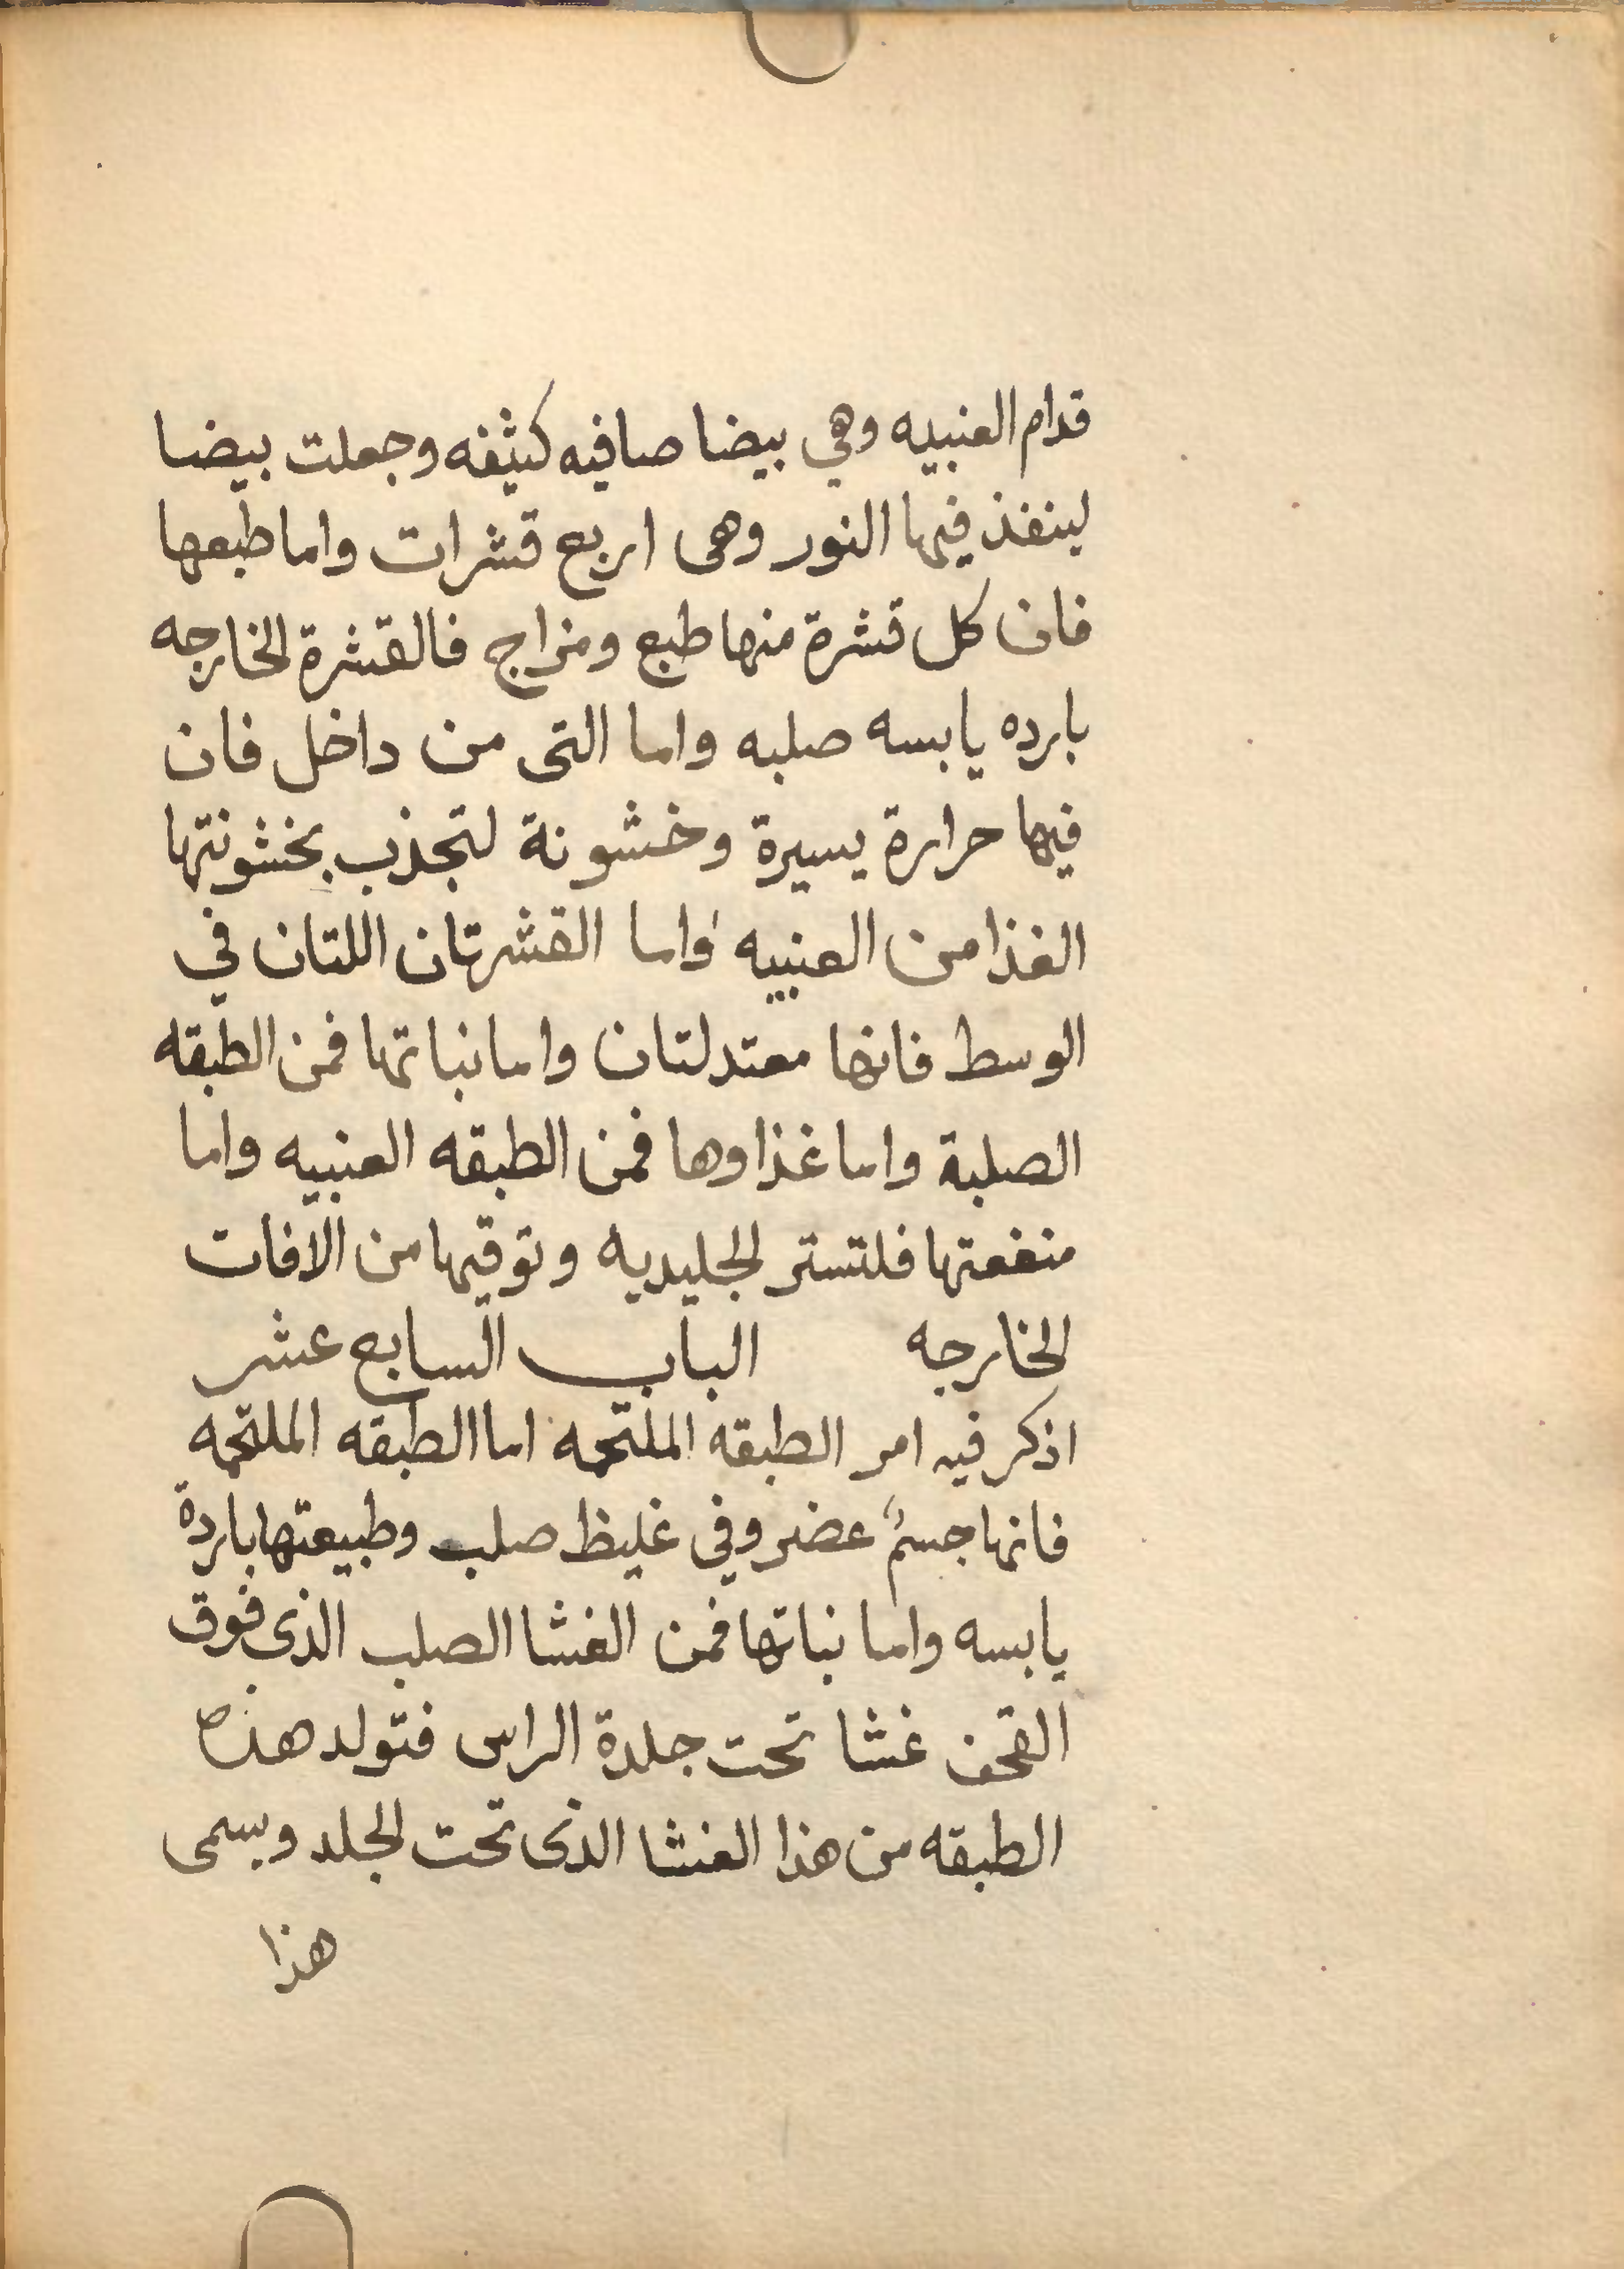 قدام العنبيه وهي بيضا صافيه كثيفه وجعلت بيضا
لينفذ فيها النور وهى اربع قشرات واما طبعها
فان كل قشرة منها طبع ومزاج فالقشرة الخارجه
بارده يابسه صلبه واما التى من داخل فان
فيها حرارة يسيرة وخشونة لتجذب بخشونتها
الغذا من العنبيه واما القشرتان اللتان في
الوسط فانها معتدلتان واما نباتها فمن الطبقه
الصلبة واما غذاوها فمن الطبقه العنبيه واما
منفعتها فلتستر الجليديه وتوقيها من الافات
الخارجه الباب السابع عشر
اذكر فيه امر الطبقه الملتحمه اما الطبقه الملتحمه
فانها جسمٌ عضروفي غليظ صلب وطبيعتها باردة
يابسه واما نباتها فمن الغشا الصلب الذى فوق
القحف غشا تحت جلدة الراس فتولد هذه
الطبقه من هذا الغشا الذى تحت الجلد ويسمى
هذا